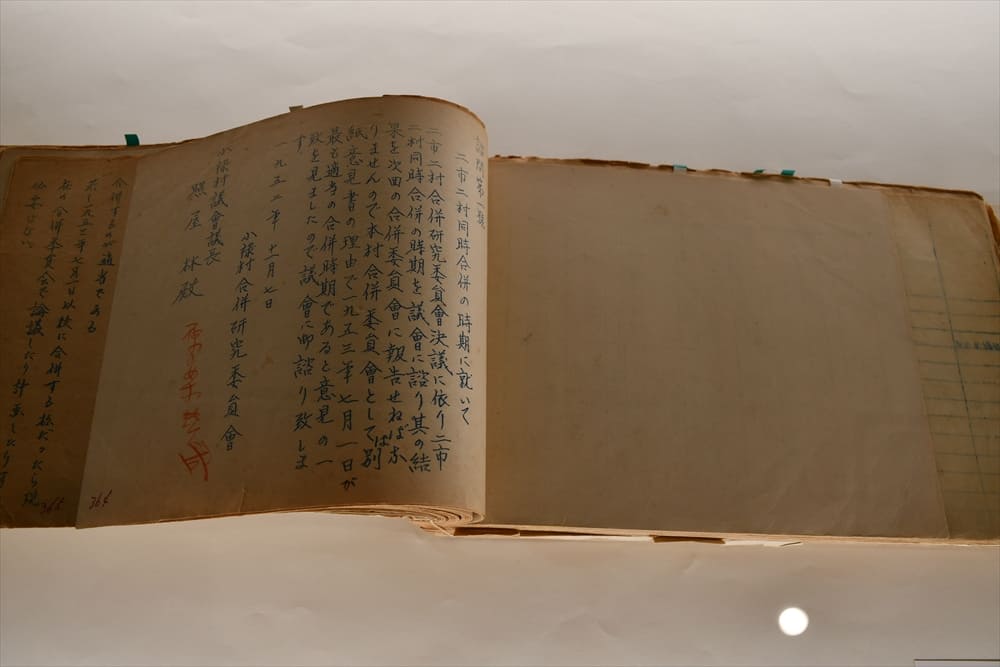 諮問第一號
二市二村同時合併の時期に就いて
二市二村合併研究委員會決議に依り二市
二村同時合併の時期を議會に諮り其の結
果を次回の合併委員會に報告せねばな
りませんので本村合併委員會としては別
紙意見書の理由で一九五三年七月一日が
最も適当の合併時期であると意見の一
致を見ましたので議會に御諮り致しま
す
一九五二年十一月七日
小禄村合併研究委員會
小禄村議會議長
照屋林殿
364
合併するのが適当である
若し一九五三年七月一日以後に合併する
365